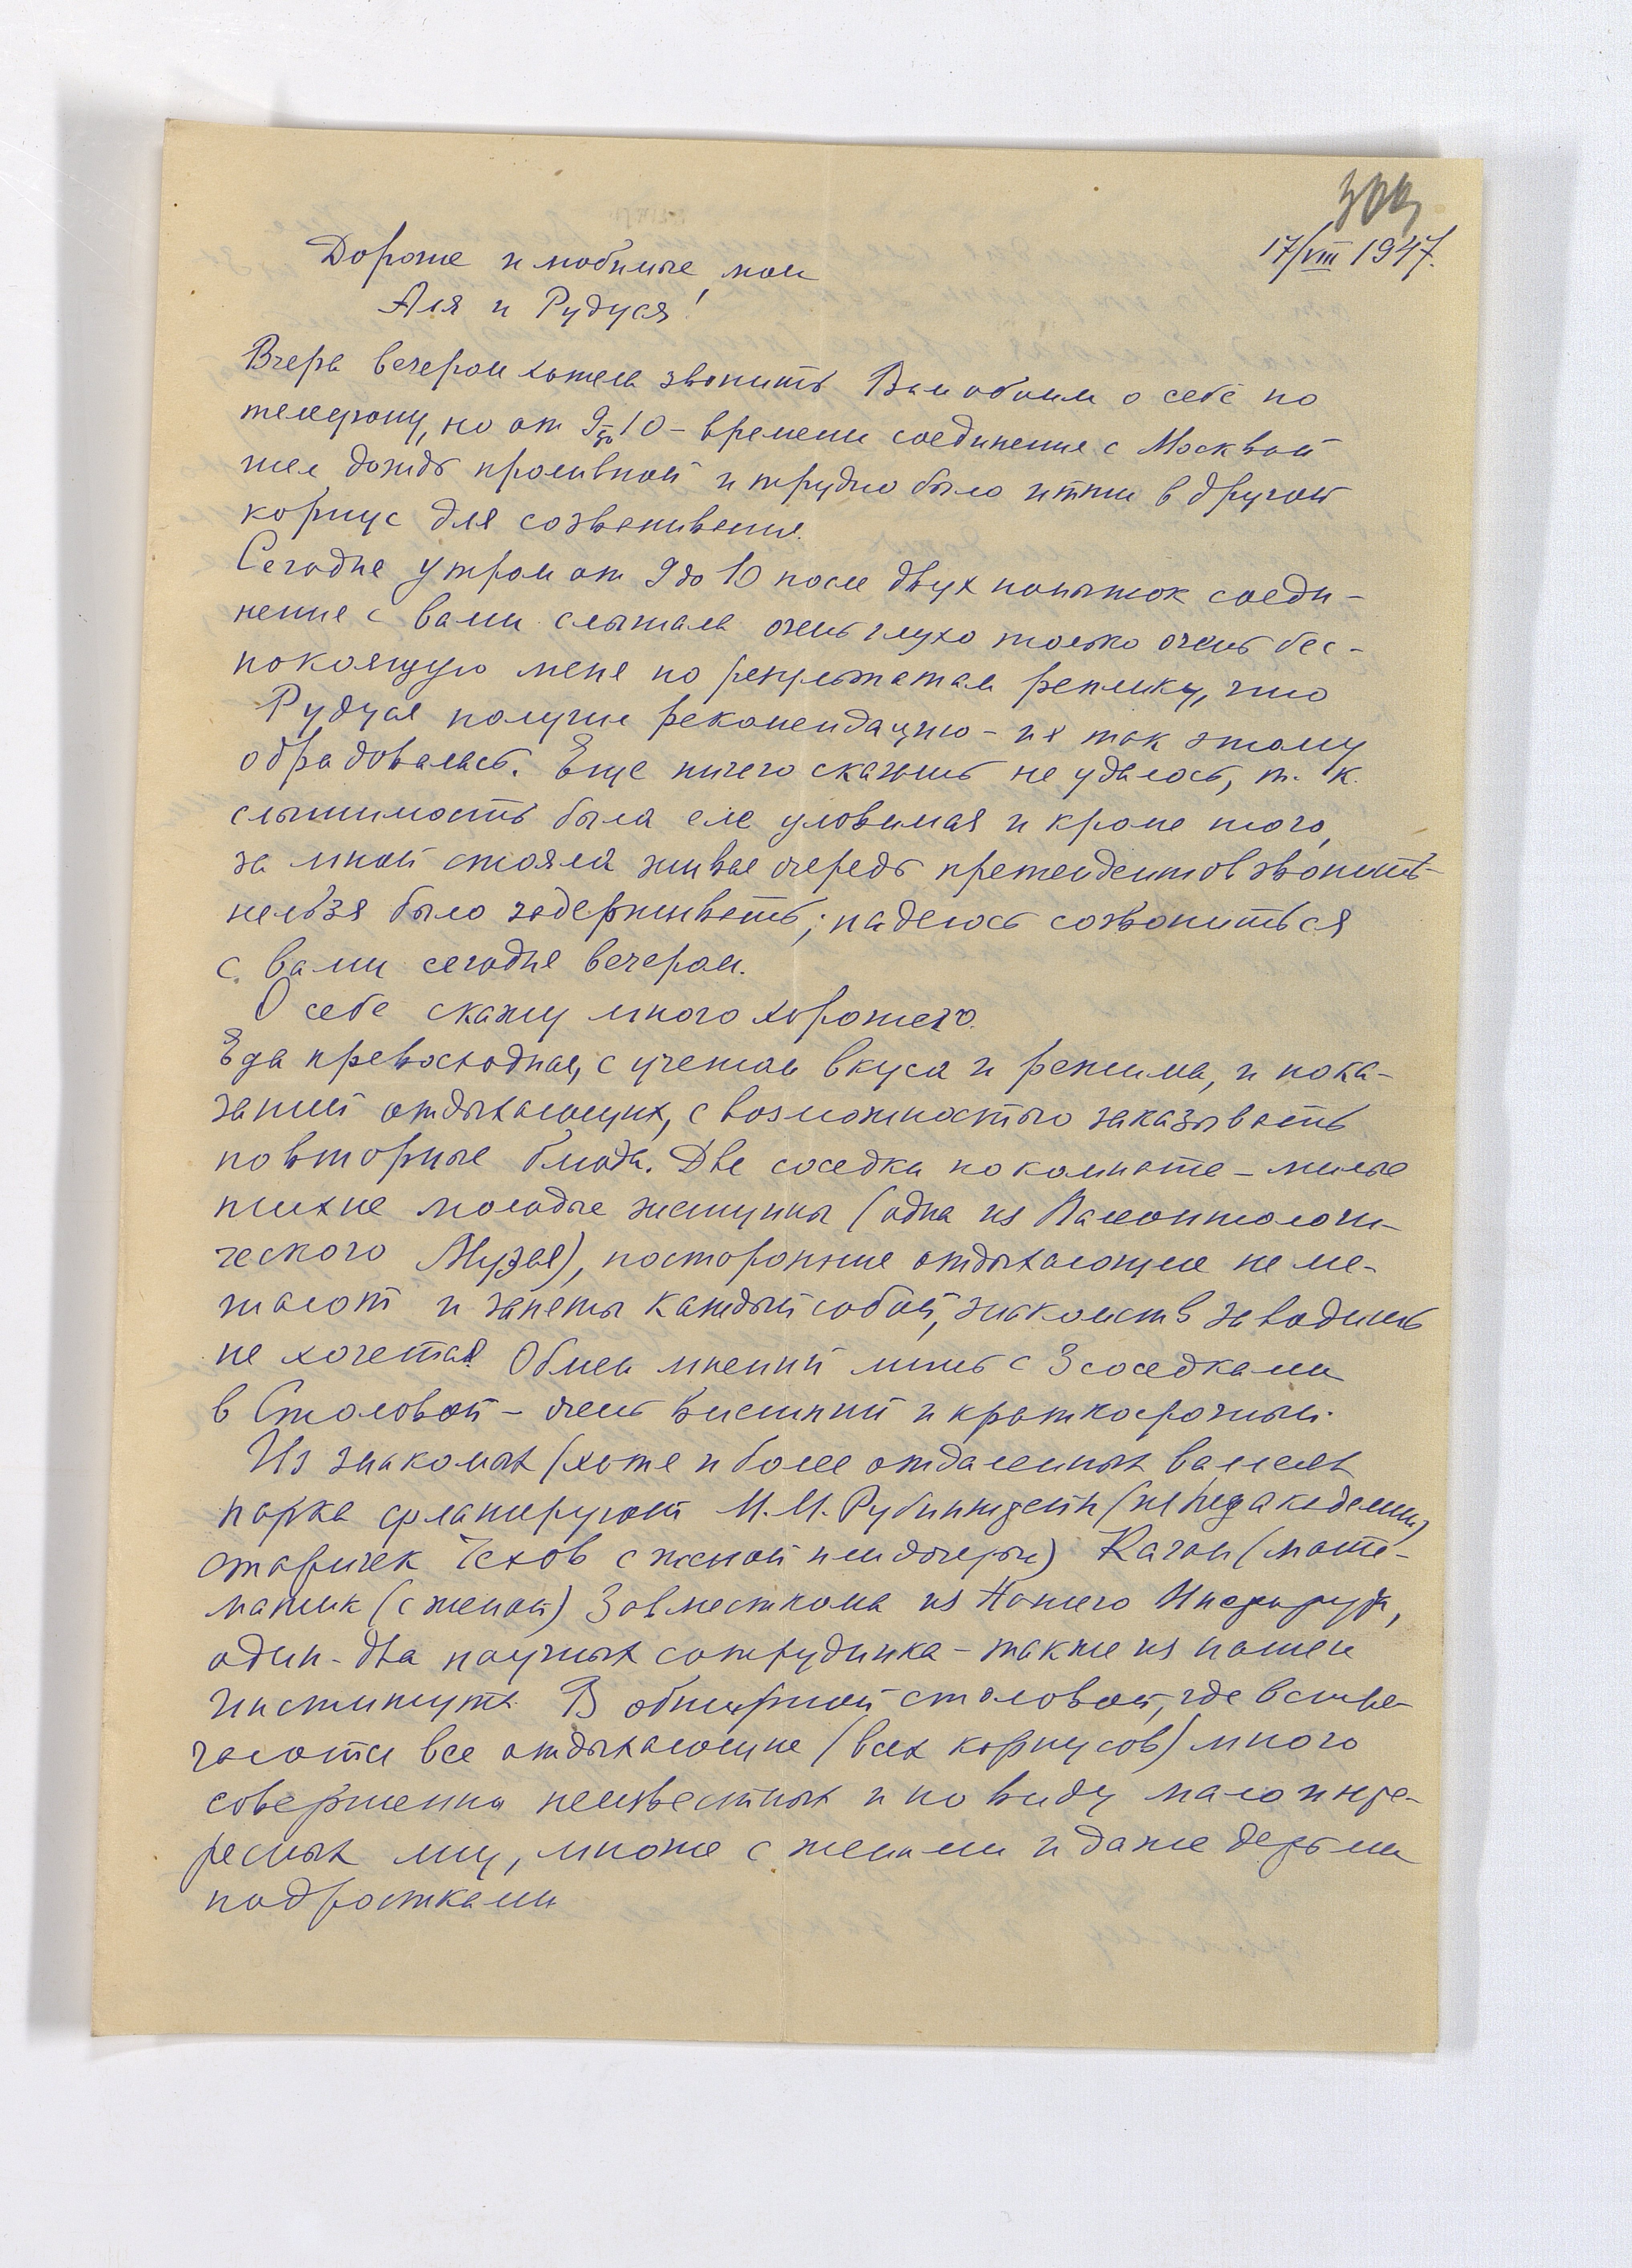 309
17/VIII 1947.
Дорогие и любимые мои
Аля и Рудуся!
Вчера вечером хотела звонить Вам обоим о себе по
телефону, но от 9 до 10 – времени соединения с Москвой
шел дождь проливной и трудно было итти в другой
корпус для созванивания.
Сегодня утром от 9 до 10 после двух попыток соеди-
нения с вами слышала очень глухо только очень бес-
покоящую меня по результатам реплику, что
Рудуся получил рекомендацию – и я так этому
обрадовалась. Еще ничего сказать не удалось, т. к.
слышимость была еле уловимая и кроме того,
за мной стояла живая очередь претендентов звонить –
нельзя было задерживать; надеюсь созвониться
с вами сегодня вечером.
О себе скажу много хорошего.
Еда превосходная, с учетом вкуса и режима, и пока-
заний отдыхающих, с возможностью заказывать
повторные блюда. Две соседки по комнате – милые
тихие молодые женщины (одна из Палеонтологи-
ческого Музея), посторонние отдыхающие не ме-
шают и заняты каждый собой, знакомств заводить
не хочется. Обмен мнений лишь с 3 соседками
в Столовой – очень внешний и краткосрочный.
Из знакомых (хотя и более отдаленных) в аллеях
парка фланируют М. М. Рубинштейн (из педакадемии)
старичек Чехов с женой или дочерью) Каган (мате-
матик (с женой) Завместкома из Нашего Института,
один-два научных сотрудника – также из нашего
Института. В обширной столовой, где встре-
чаются все отдыхающие (всех корпусов) много
совершенно неизвестных и по виду мало инте-
ресных лиц, многие с женами и даже детьми
подростками